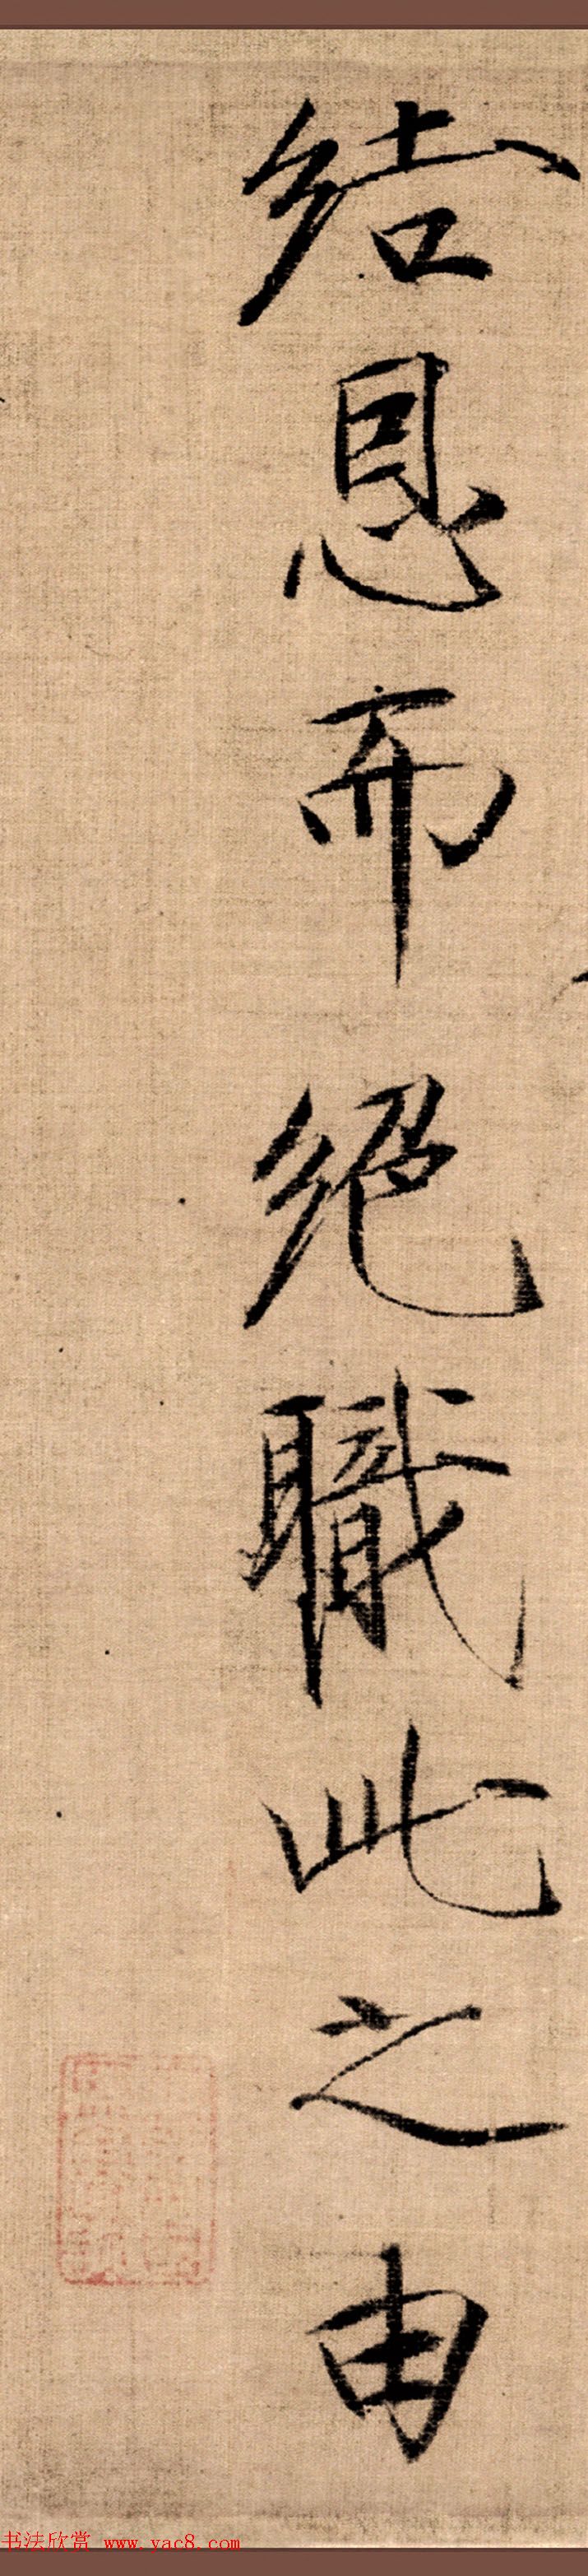 結恩而絕職此之由
书法欣赏 www.yac8.com